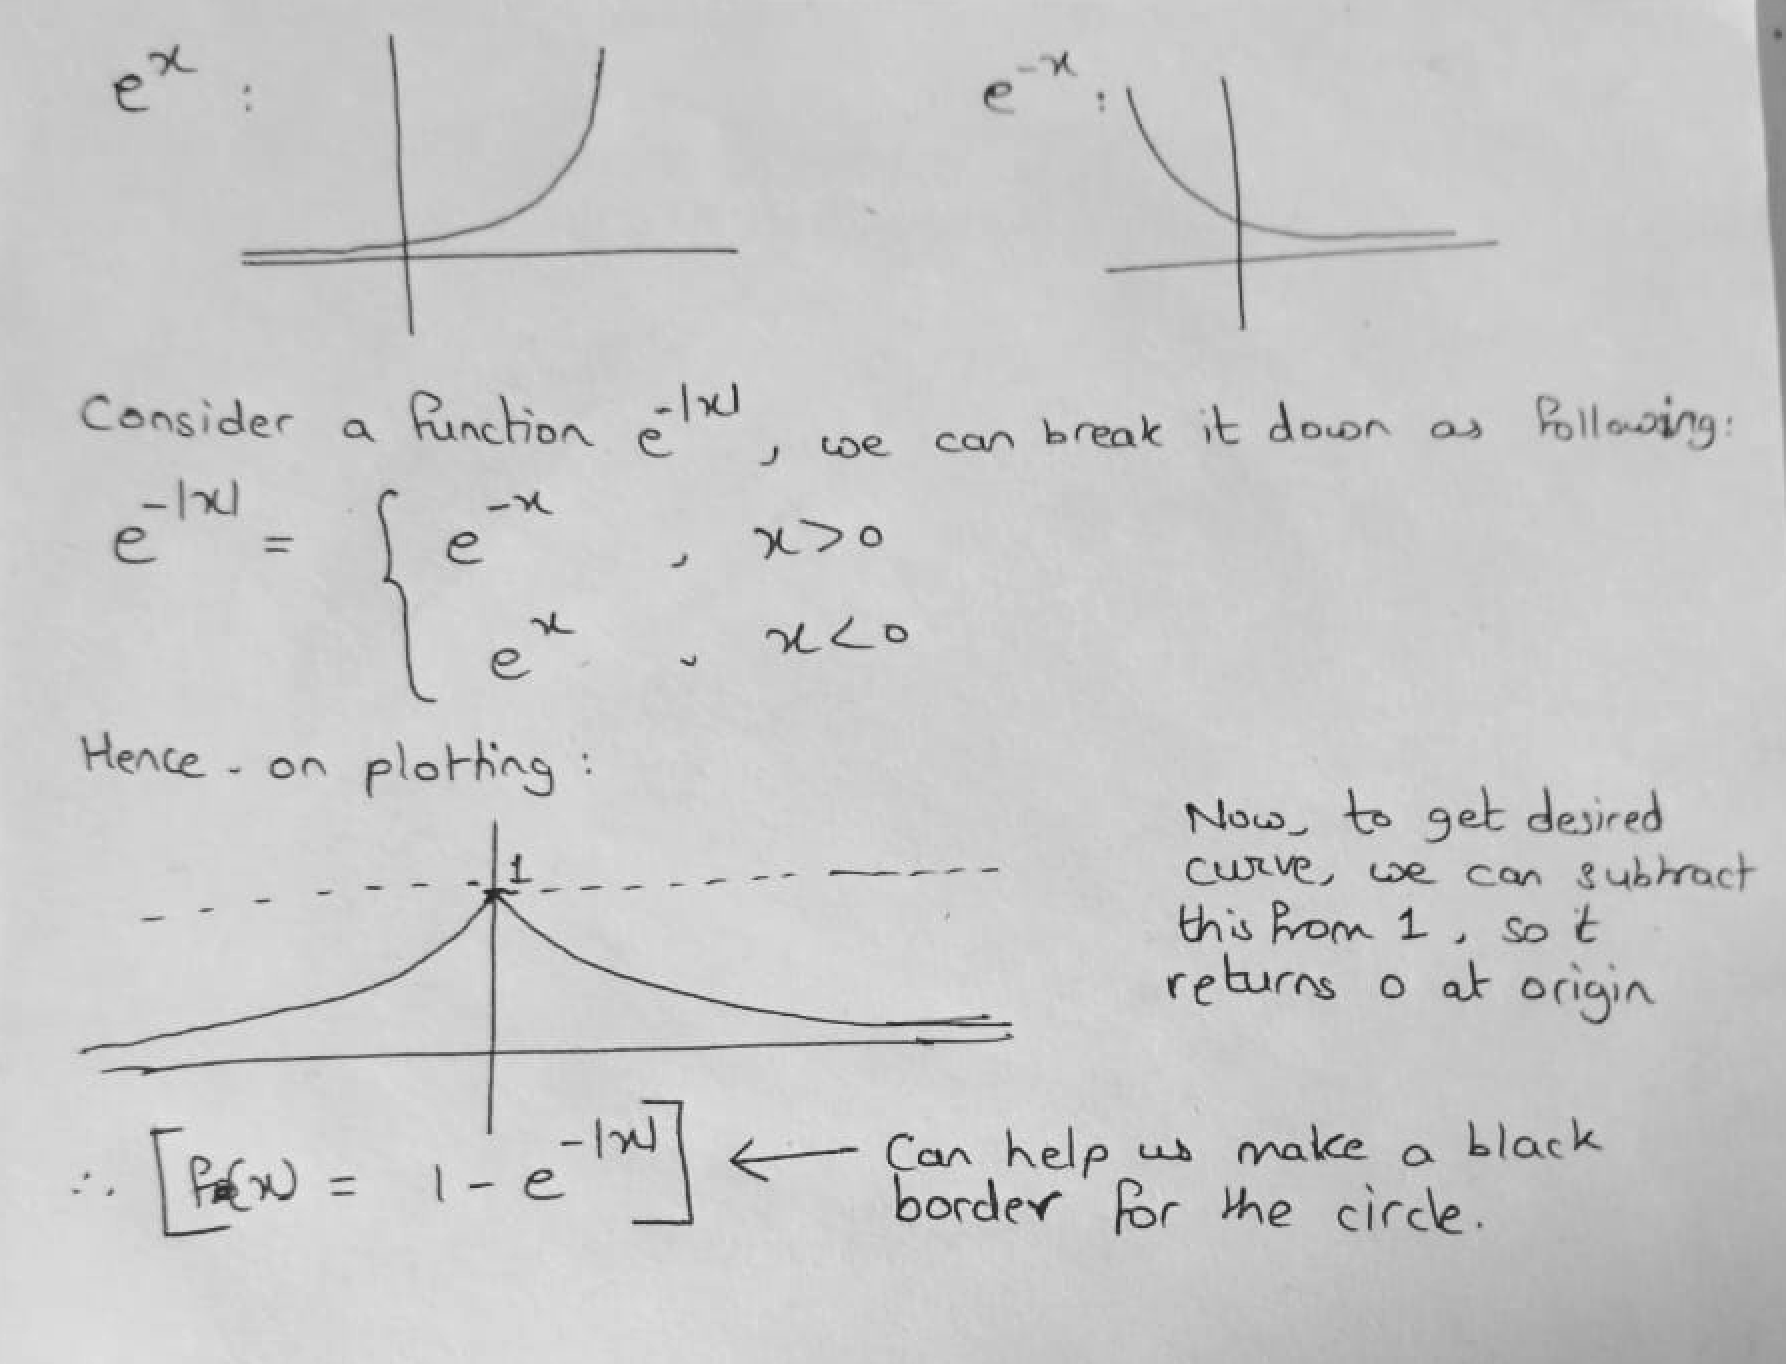 eˣ :
e⁻ˣ :
Consider a function e^-|x|, we can break it down as following:
e^-|x| = { e^-x , x>0
e^x , x<0
Hence - on plotting :
1
Now, to get desired
curve, we can subtract
this from 1, so it
returns 0 at origin
∴ [f(x) = 1 - e^-|x|] ← Can help us make a black
border for the circle.